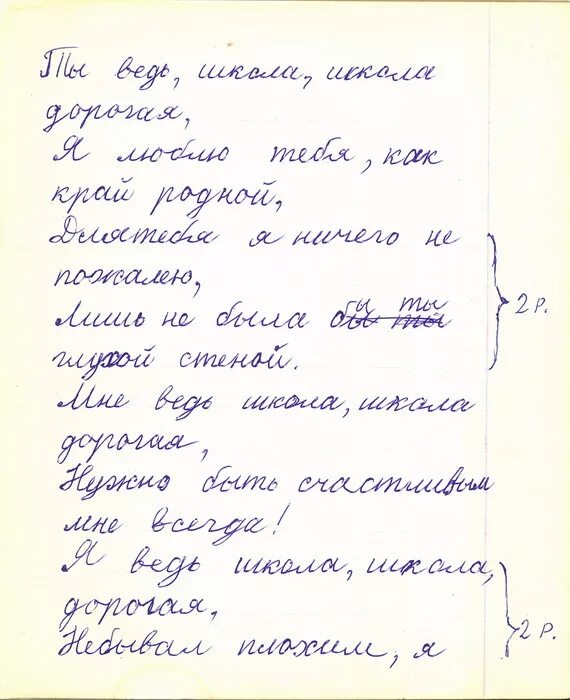 Ты ведь, школа, школа
дорогая,
Я люблю тебя, как
край родной,
Длятебя я ничего не
пожалею,
Лишь не была бы ты 2 р.
глухой стеной.
Мне ведь школа, школа
дорогая,
Нужно быть счастливым
мне всегда!
Я ведь школа, школа,
дорогая, 2 р.
Небывал плохим, я